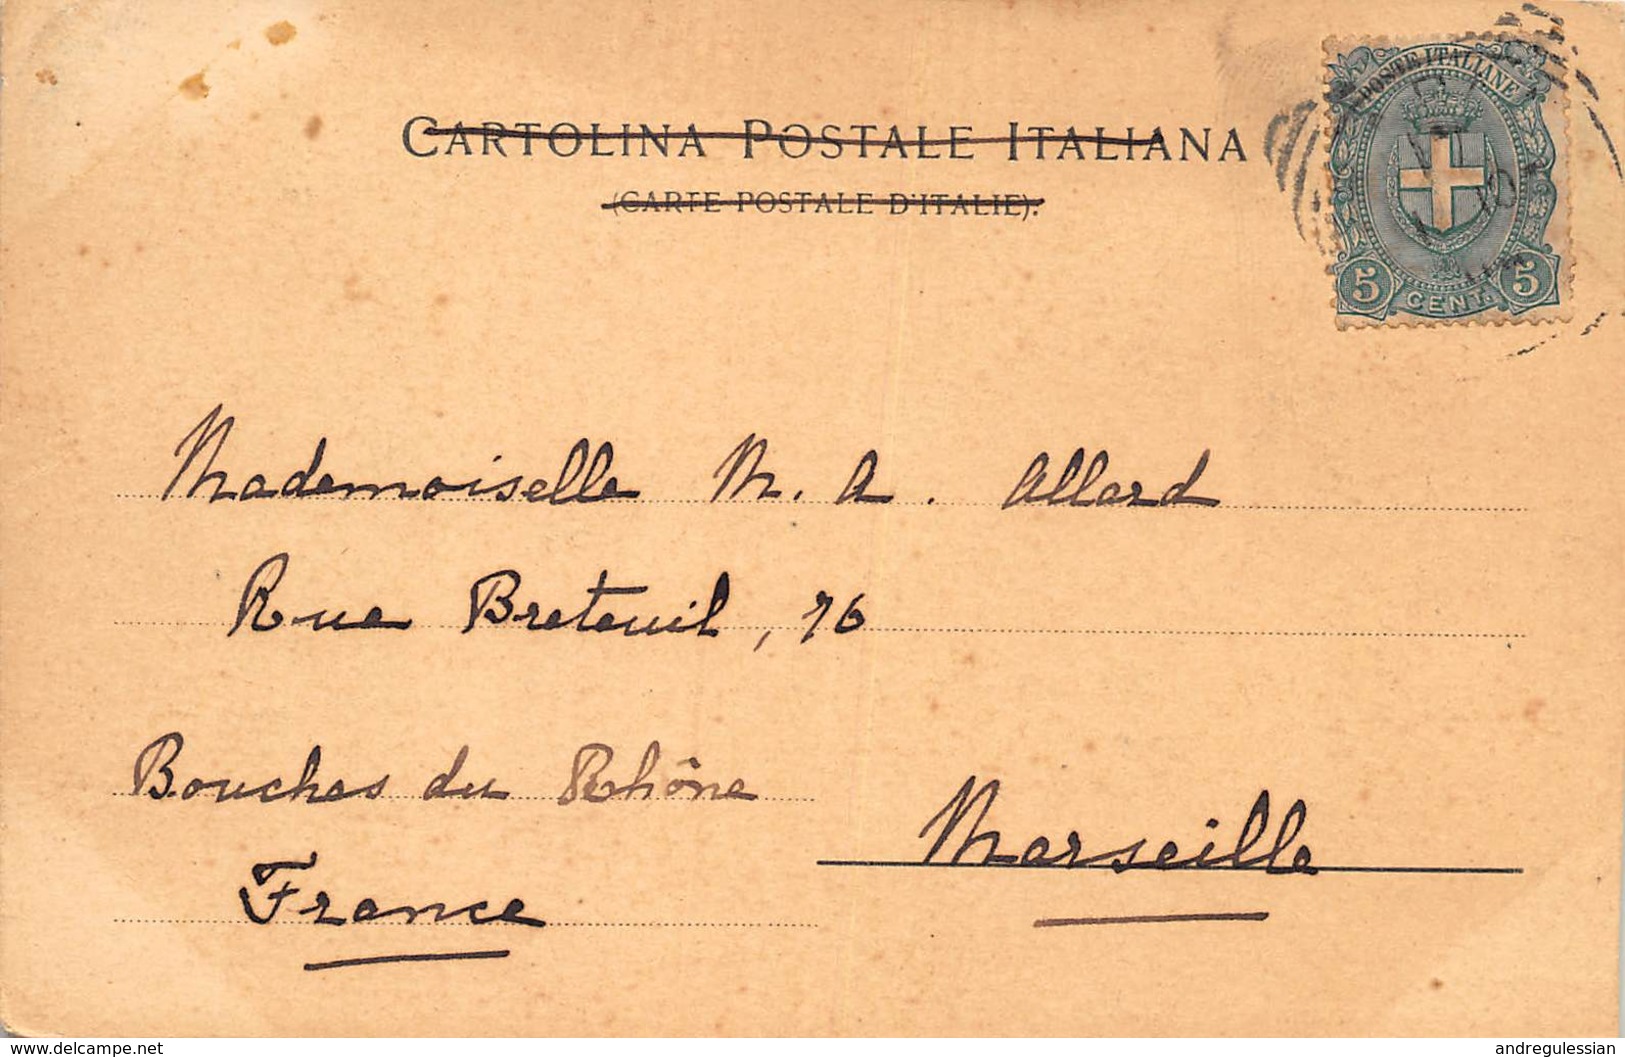 CARTOLINA POSTALE ITALIANA
(CARTE POSTALE D'ITALIE).
POSTE ITALIANE
5 CENT. 5
Mademoiselle M. A. Allard
Rue Breteuil, 76
Bouches du Rhône
Marseille
France
www.delcampe.net
andregulessian